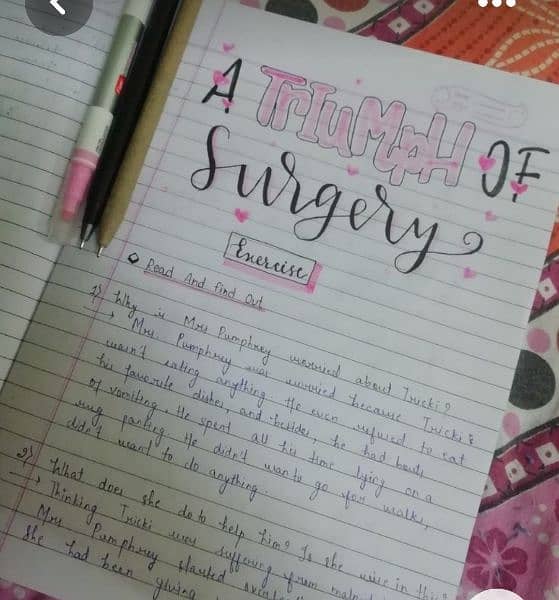 A TRIUMPH OF
Surgery
Exercise
Read And Find Out
1) Why is Mrs Pumphrey worried about Tricki?
→ Mrs. Pumphrey was worried because Tricki
wasn't eating anything. He even refused to eat
his favourite dishes, and besides, he had bouts
of vomiting. He spent all his time lying on a
rug panting. He didn't want to go for walks,
didn't want to do anything.
2) What does she do to help him? Is she wise in this?
→ Thinking Tricki was suffering from
Mrs Pumphrey started
She had been giving